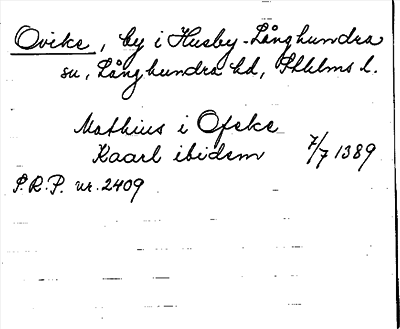 Ovike, by i Husby-Långhundra
su, Långhundra hd, Sthlms l.
Mathius i Ofeke
Kaarl ibidem 7/7 1389
S.R.P. nr. 2409